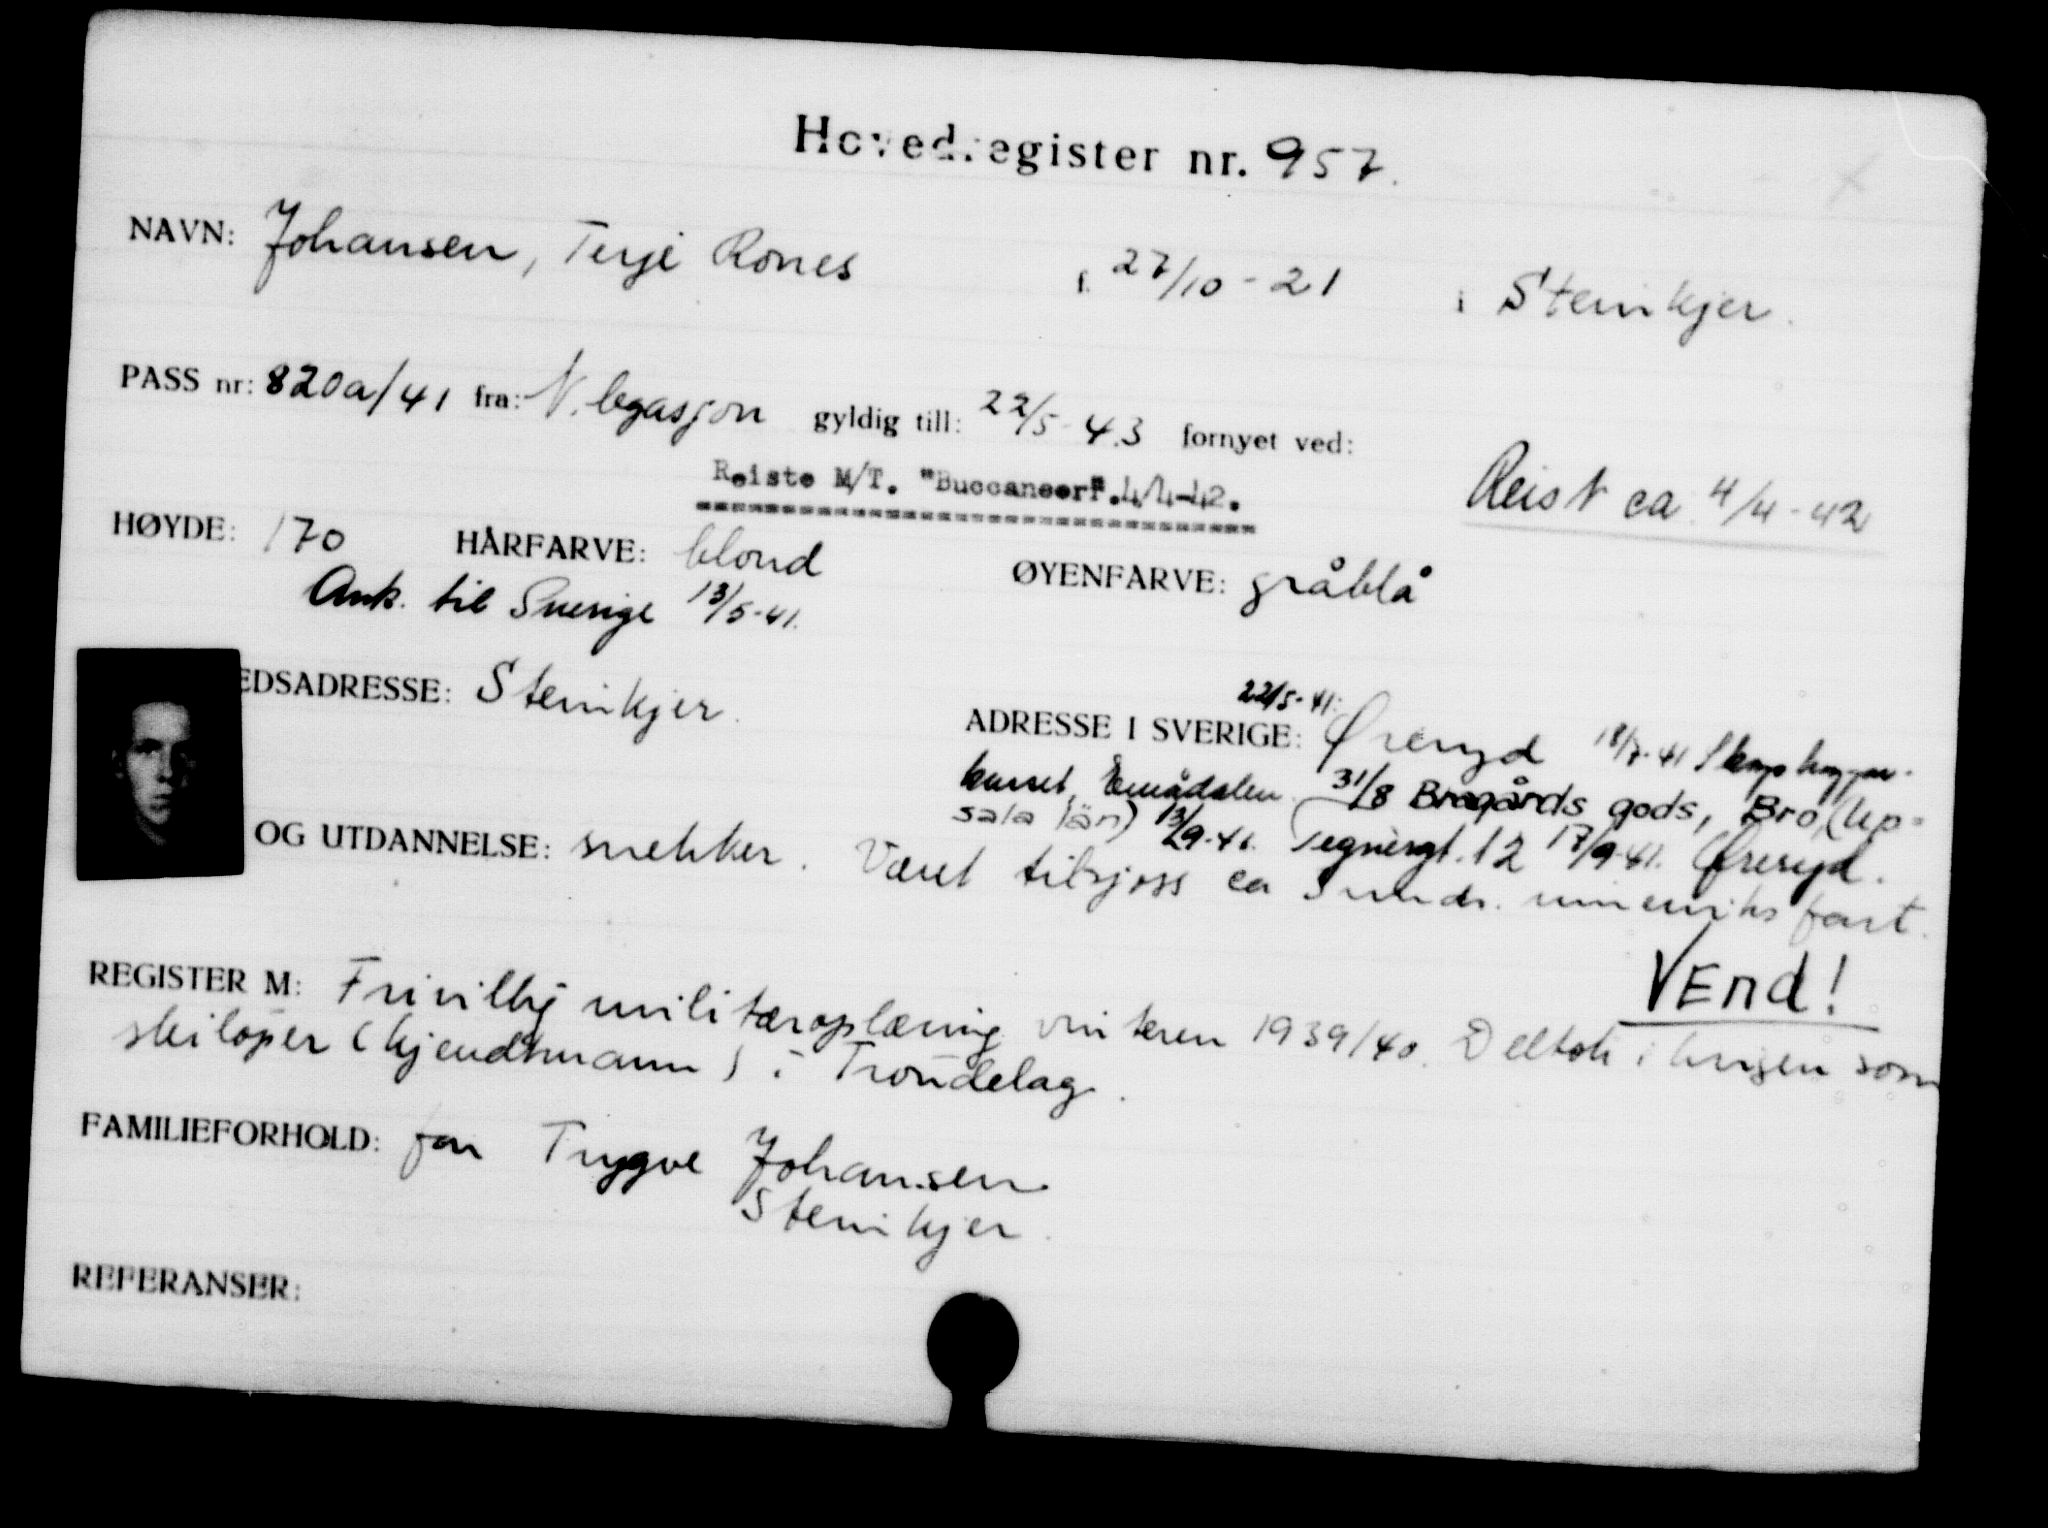 Hovedregister nr. 957.
NAVN: Johansen, Terje Rones f. 27/10-21 i Steinkjer.
PASS nr: 820a/41 fra: N. legasjon gyldig till: 22/5-43 fornyet ved:
Reiste M/T. "Buccaneer". 4/4-42. Reist ca. 4/4-42
HØYDE: 170 HÅRFARVE: blond ØYENFARVE: gråblå
Ank. til Sverige 13/5-41.
EDSADRESSE: Steinkjer.
22/5-41:
ADRESSE I SVERIGE: Øreryd 18/7-41 Skoghugger-
kurset, Emådalen. 31/8 Brogårds gods, Bro, (Up-
sala län) 13/9-41. Tegnérgt. 12 17/9-41. Øreryd.
OG UTDANNELSE: snekker. Været tilsjøss ca 3 mndr. innenriks fart.
VEnd!
REGISTER M: Frivillig militæroplæring vinteren 1939/40. Deltok i krigen som
skiløper (kjendtmann) i Trøndelag.
FAMILIEFORHOLD: far Trygve Johansen
Steinkjer.
REFERANSER: